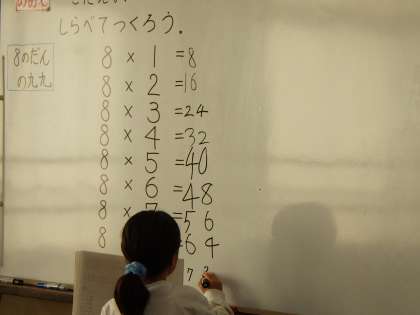 しらべてつくろう。
8のだん
の九九
8 × 1 = 8
8 × 2 = 16
8 × 3 = 24
8 × 4 = 32
8 × 5 = 40
8 × 6 = 48
8 × 7 = 56
8 = 64
7